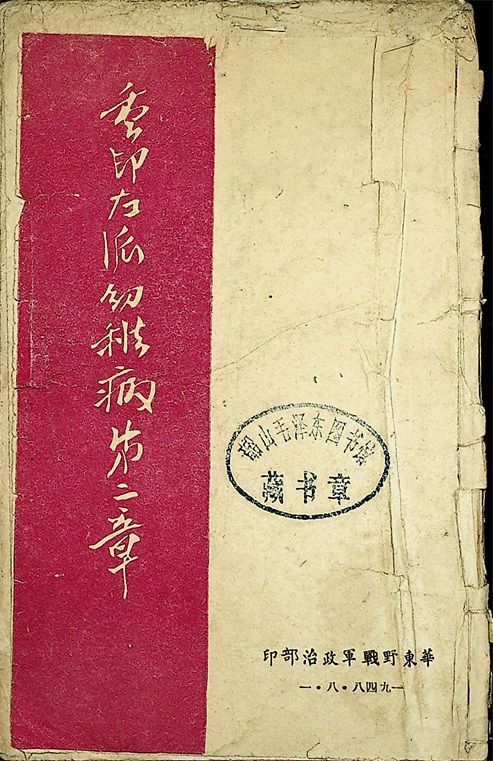 重印左派幼稚病第二章
韶山毛泽东图书馆
藏书章
華東野戰軍政治部印
一九四八·八·一